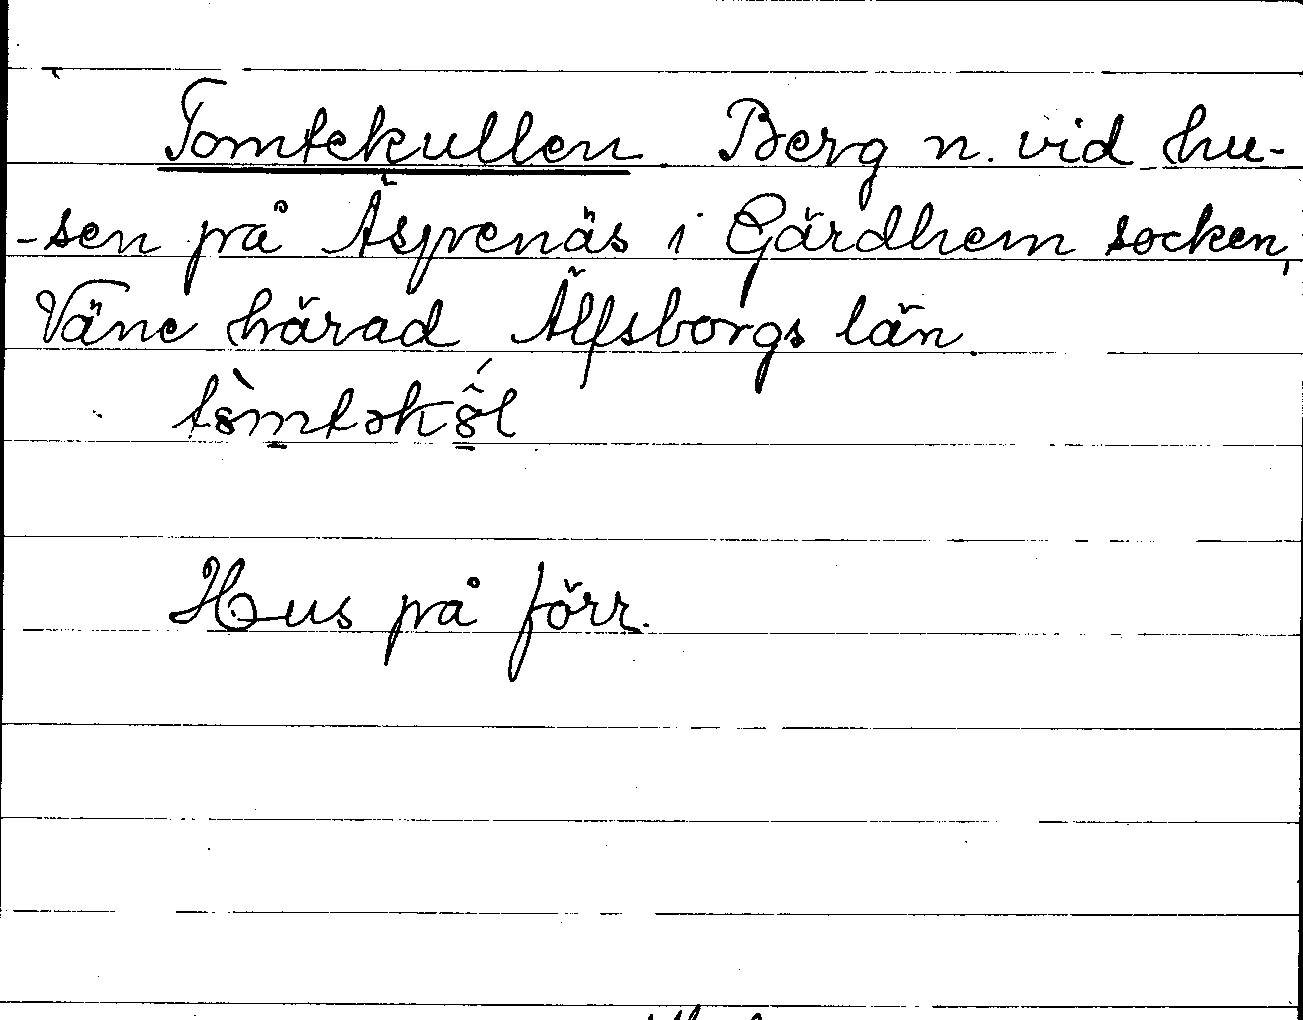 Tomtekullen. Berg n. vid hu-
-sen på Äspenäs i Gärdhem socken,
Väne härad, Älfsborgs län.
Hus på förr.